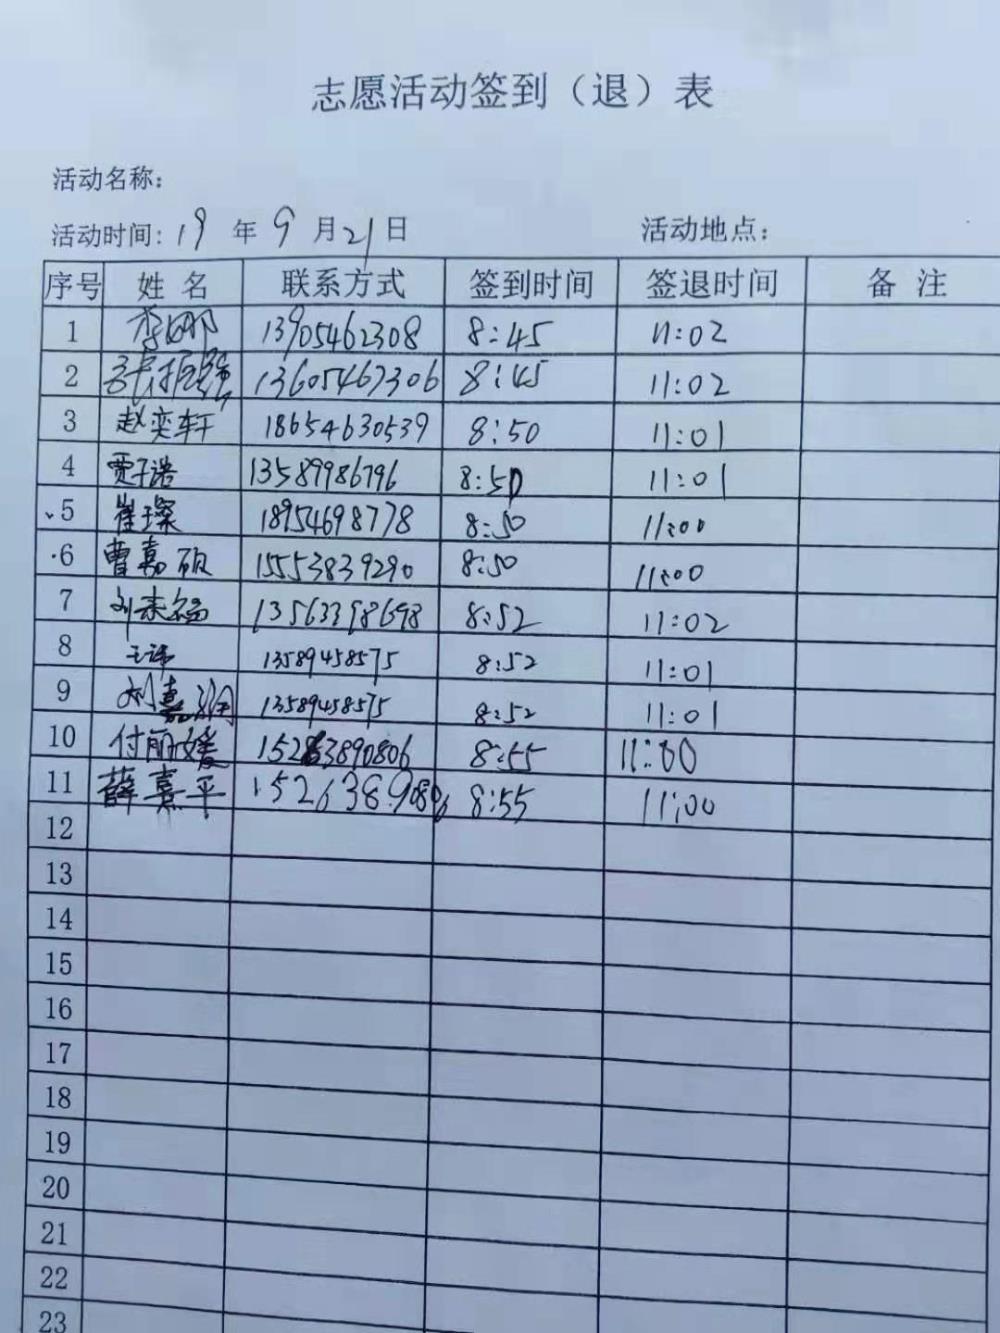 志愿活动签到（退）表
活动名称：
活动时间：19 年 9 月 21 日 活动地点：
序号 姓 名 联系方式 签到时间 签退时间 备 注
1 李娜 13905462308 8:45 11:02
2 张 13605467306 8:45 11:02
3 赵奕轩 18654630539 8:50 11:01
4 贾子诺 13589986796 8:50 11:01
5 崔璨 18954698778 8:50 11:00
6 曹嘉硕 15553839290 8:50 11:00
7 刘 13563398698 8:52 11:02
8 王 13589458575 8:52 11:01
9 刘嘉润 13589458575 8:52 11:01
10 付丽媛 15263890806 8:55 11:00
11 薛熹平 15263890806 8:55 11:00
12
13
14
15
16
17
18
19
20
21
22
23